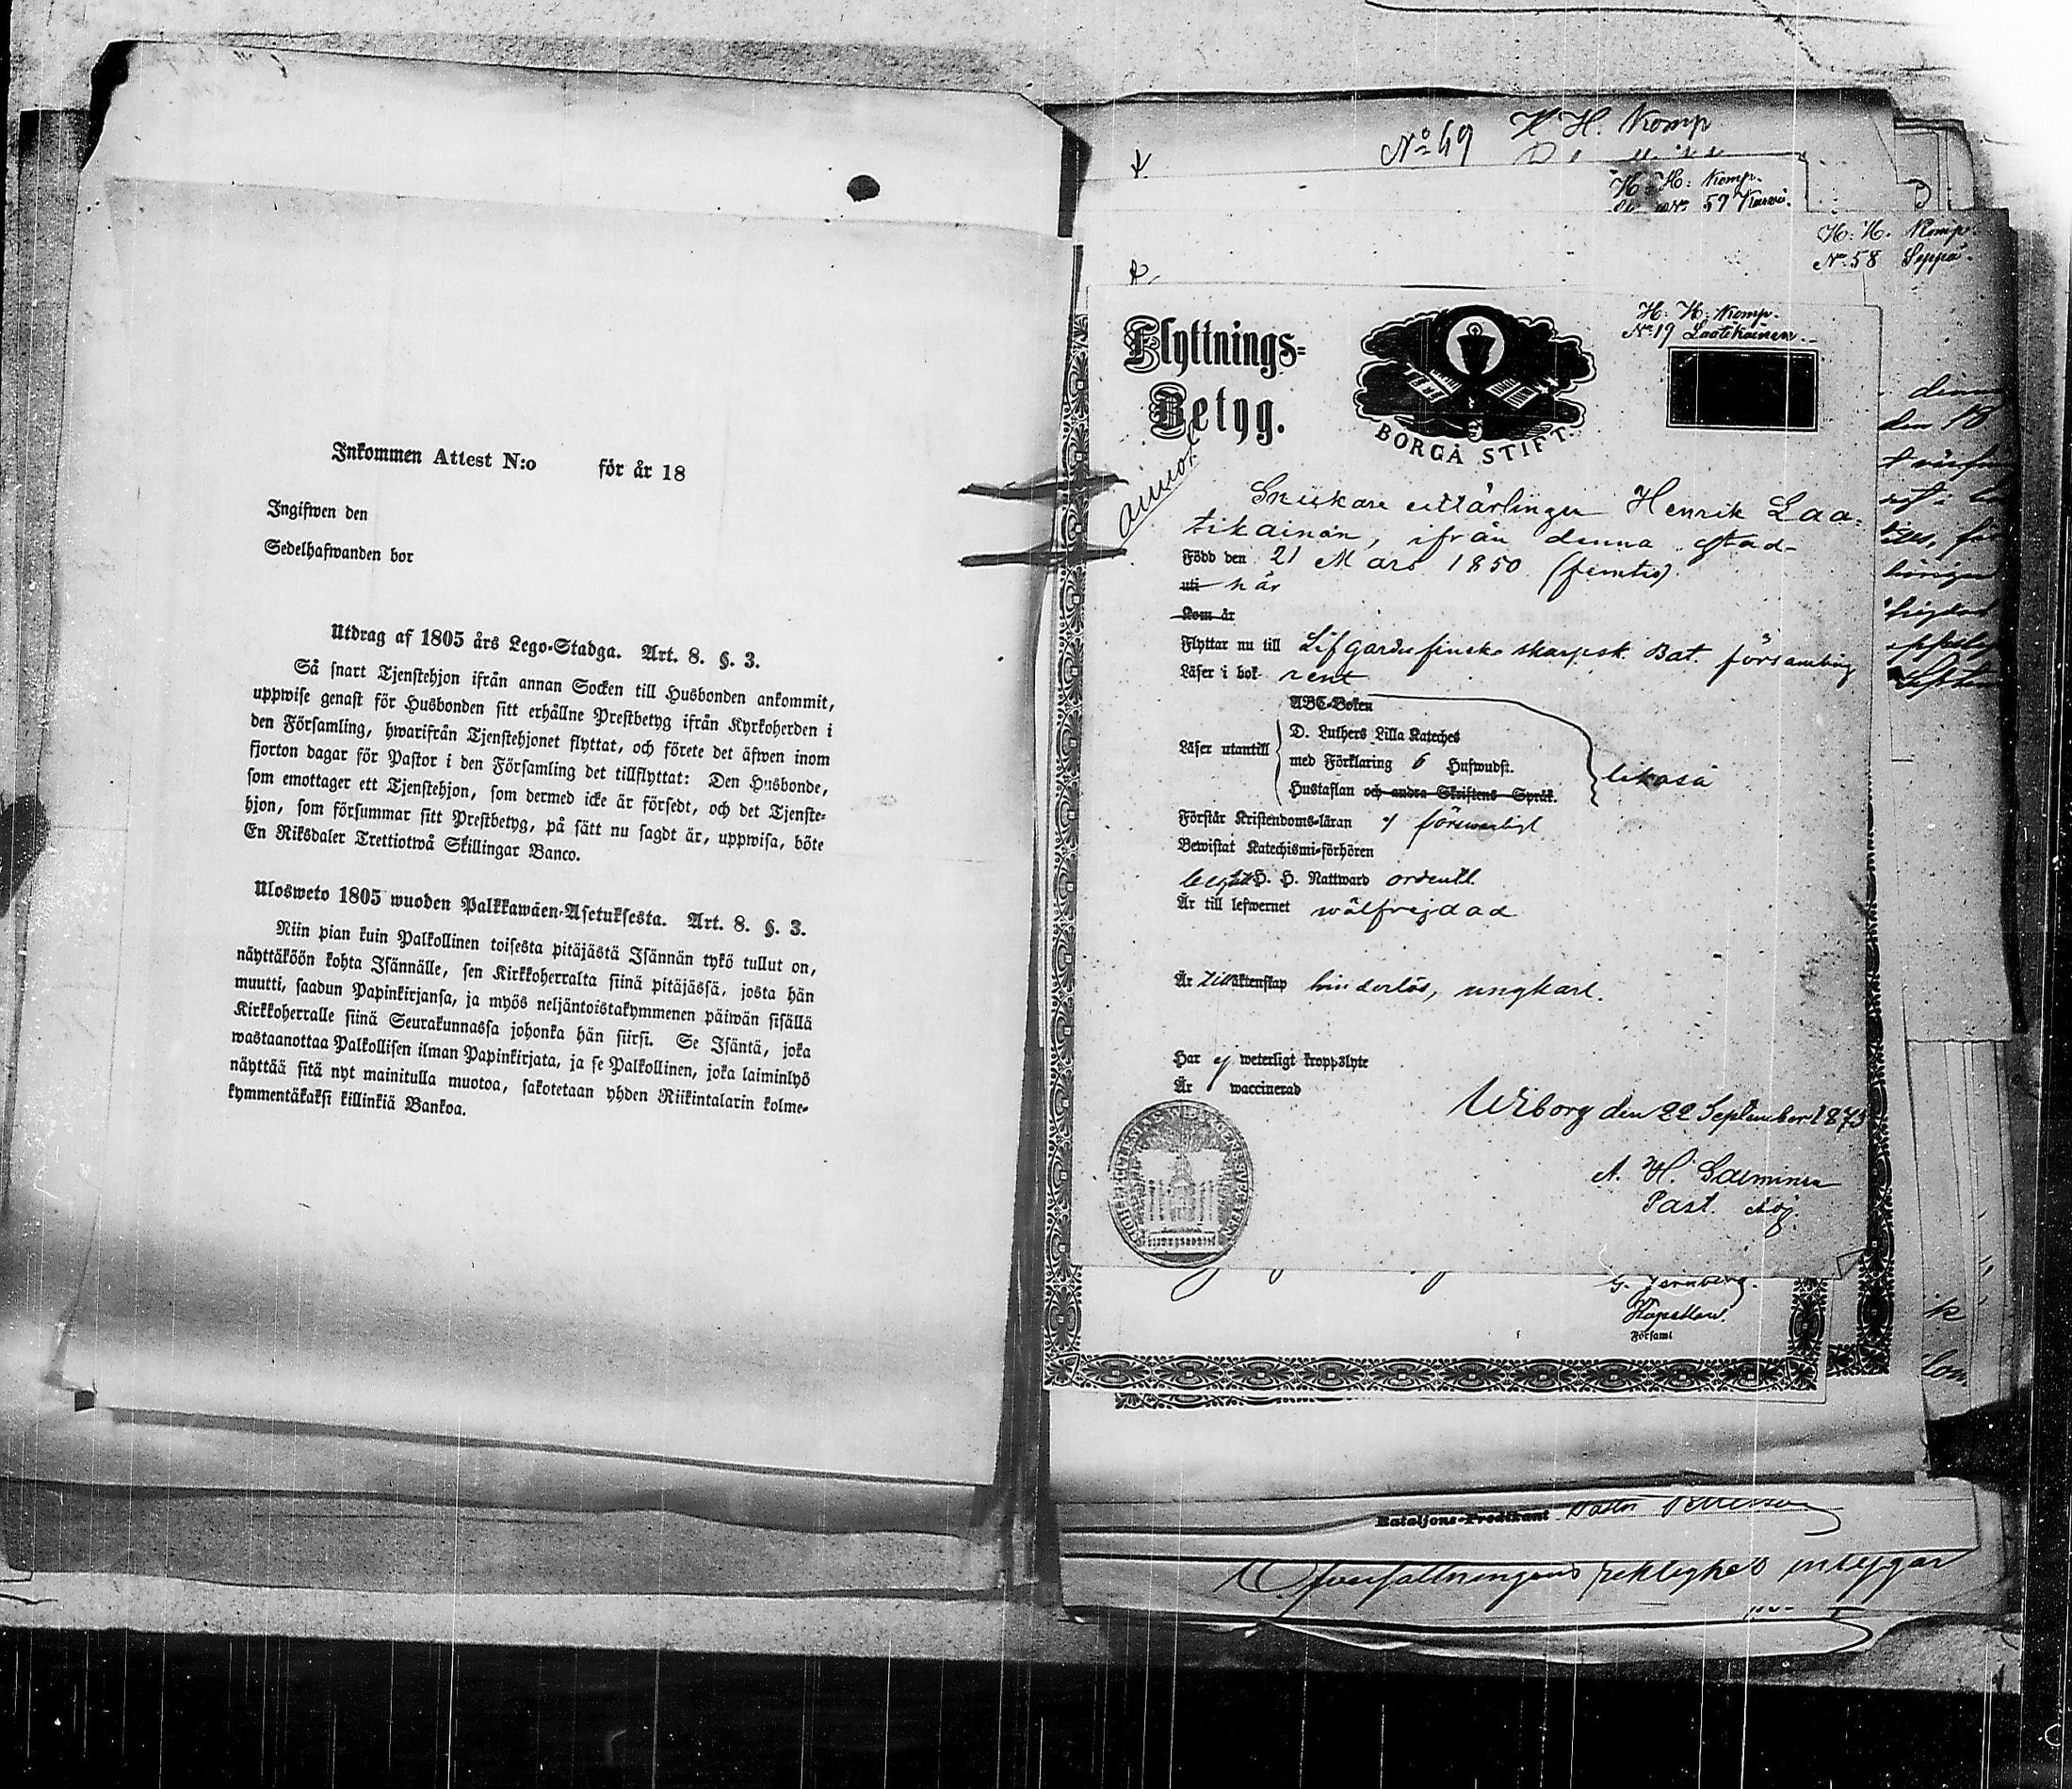 Inkommen Attest N:o för år 18
Ingifwen den
Sedelhafwanden bor
Utdrag af 1805 års Lego-Stadga. Art. 8. §. 3.
Så snart Tjenstehjon ifrån annan Socken till Husbonden ankommit,
uppwise genast för Husbonden sitt erhållne Prestbetyg ifrån Kyrkoherden i
den Församling, hwarifrån Tjenstehjonet flyttat, och förete det äfwen inom
fjorton dagar för Pastor i den Församling det tillflyttat: Den Husbonde,
som emottager ett Tjenstehjon, som dermed icke är försedt, och det Tjenste-
hjon, som försummar sitt Prestbetyg, på sätt nu sagdt är, uppwisa, böte
En Riksdaler Trettiotwå Skillingar Banco.
Ulosweto 1805 wuoden Palkkawäen-Asetuksesta. Art. 8. §. 3.
Niin pian kuin Palkollinen toisesta pitäjästä Isännän tykö tullut on,
näyttäköön kohta Isännälle, sen Kirkkoherralta siinä pitäjässä, josta hän
muutti, saadun Papinkirjansa, ja myös neljäntoistakymmenen päiwän sisällä
Kirkkoherralle siinä Seurakunnassa johonka hän siirsi. Se Isäntä, joka
wastaanottaa Palkollisen ilman Papinkirjata, ja se Palkollinen, joka laiminlyö
näyttää sitä nyt mainitulla muotoa, sakotetaan yhden Riikintalarin kolme-
kymmentäkaksi killinkiä Bankoa.
No 69 H. Komp
H. H: Komp.
No 59
H. H. Komp.
No 58 Seppä.
H. H. Komp.
No 19 Laatikainen
Flyttnings-
Betyg.
BORGÅ STIFT.
Henrik Laa-
tikainen, ifrån denna stad
Född den 21 Mars 1850 (femtio)
uti här
Kom år
Flyttar nu till Lifgardes finska skarpsk. Bat. församling
Läser i bok rent
ABC-Boken
Läser utantill D. Luthers Lilla Kateches
med Förklaring 6 Hufwudst.
Hustaflan och andra Skriftens Språk.
likaså
Förstår Kristendoms-läran förswarligt
Bewistat Katechismi-förhören
begått H. H. Nattward ordentl.
Är till lefwernet wälfrejdad
Är till äktenskap hinderlös, ungkarl.
Har ej weterligt kroppslyte
Är waccinerad
Wiborg den 22 September 1873
A. H. Saeminen
Past. adj.
G. Jernberg.
Kapellan.
Församl
Bataljons-Predikant